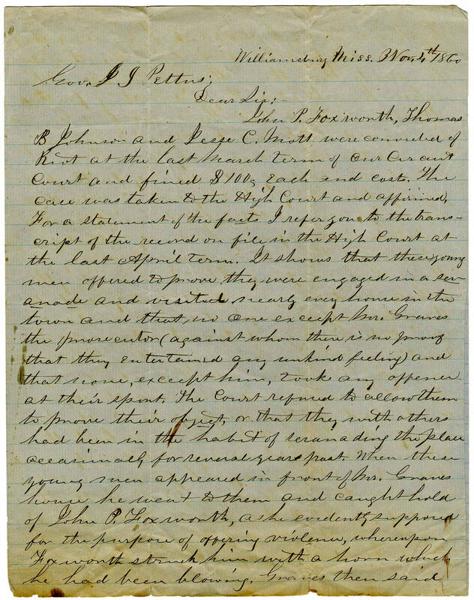 Williamsburg Miss. Nov 4th 1860
Gov. J J Pettus;
Dear Sir;-
John P. Foxworth, Thomas
B Johnson and Jesse C. Mott were convicted of
Riot at the last March term of our Circuit
Court and fined $100, each and cost. The
case was taken to the High Court and affirmed,
For a statement of the facts I refer you to the trans-
cript of the record on file in the High Court at
the last April term. It shows that these young
men offered to prove they were engaged in a ser-
anade and visited nearly every house in the
town and that no one except Mr. Graves
the prosecutor (against whom there is no proof
that they entertained any unkind feeling) and
that none, except him, took any offence
at their sport. The Court refused to allow them
to prove their object, or that they with others
had been in the habit of seranading the place
occasionally for several years past. When these
young men appeared in front of Mr. Graves
house he went to them and caught hold
of John P. Foxworth, as he evidently supposed
for the purpose of offering violence, whereupon
Foxworth struck him with a horn which
he had been blowing. Graves then said